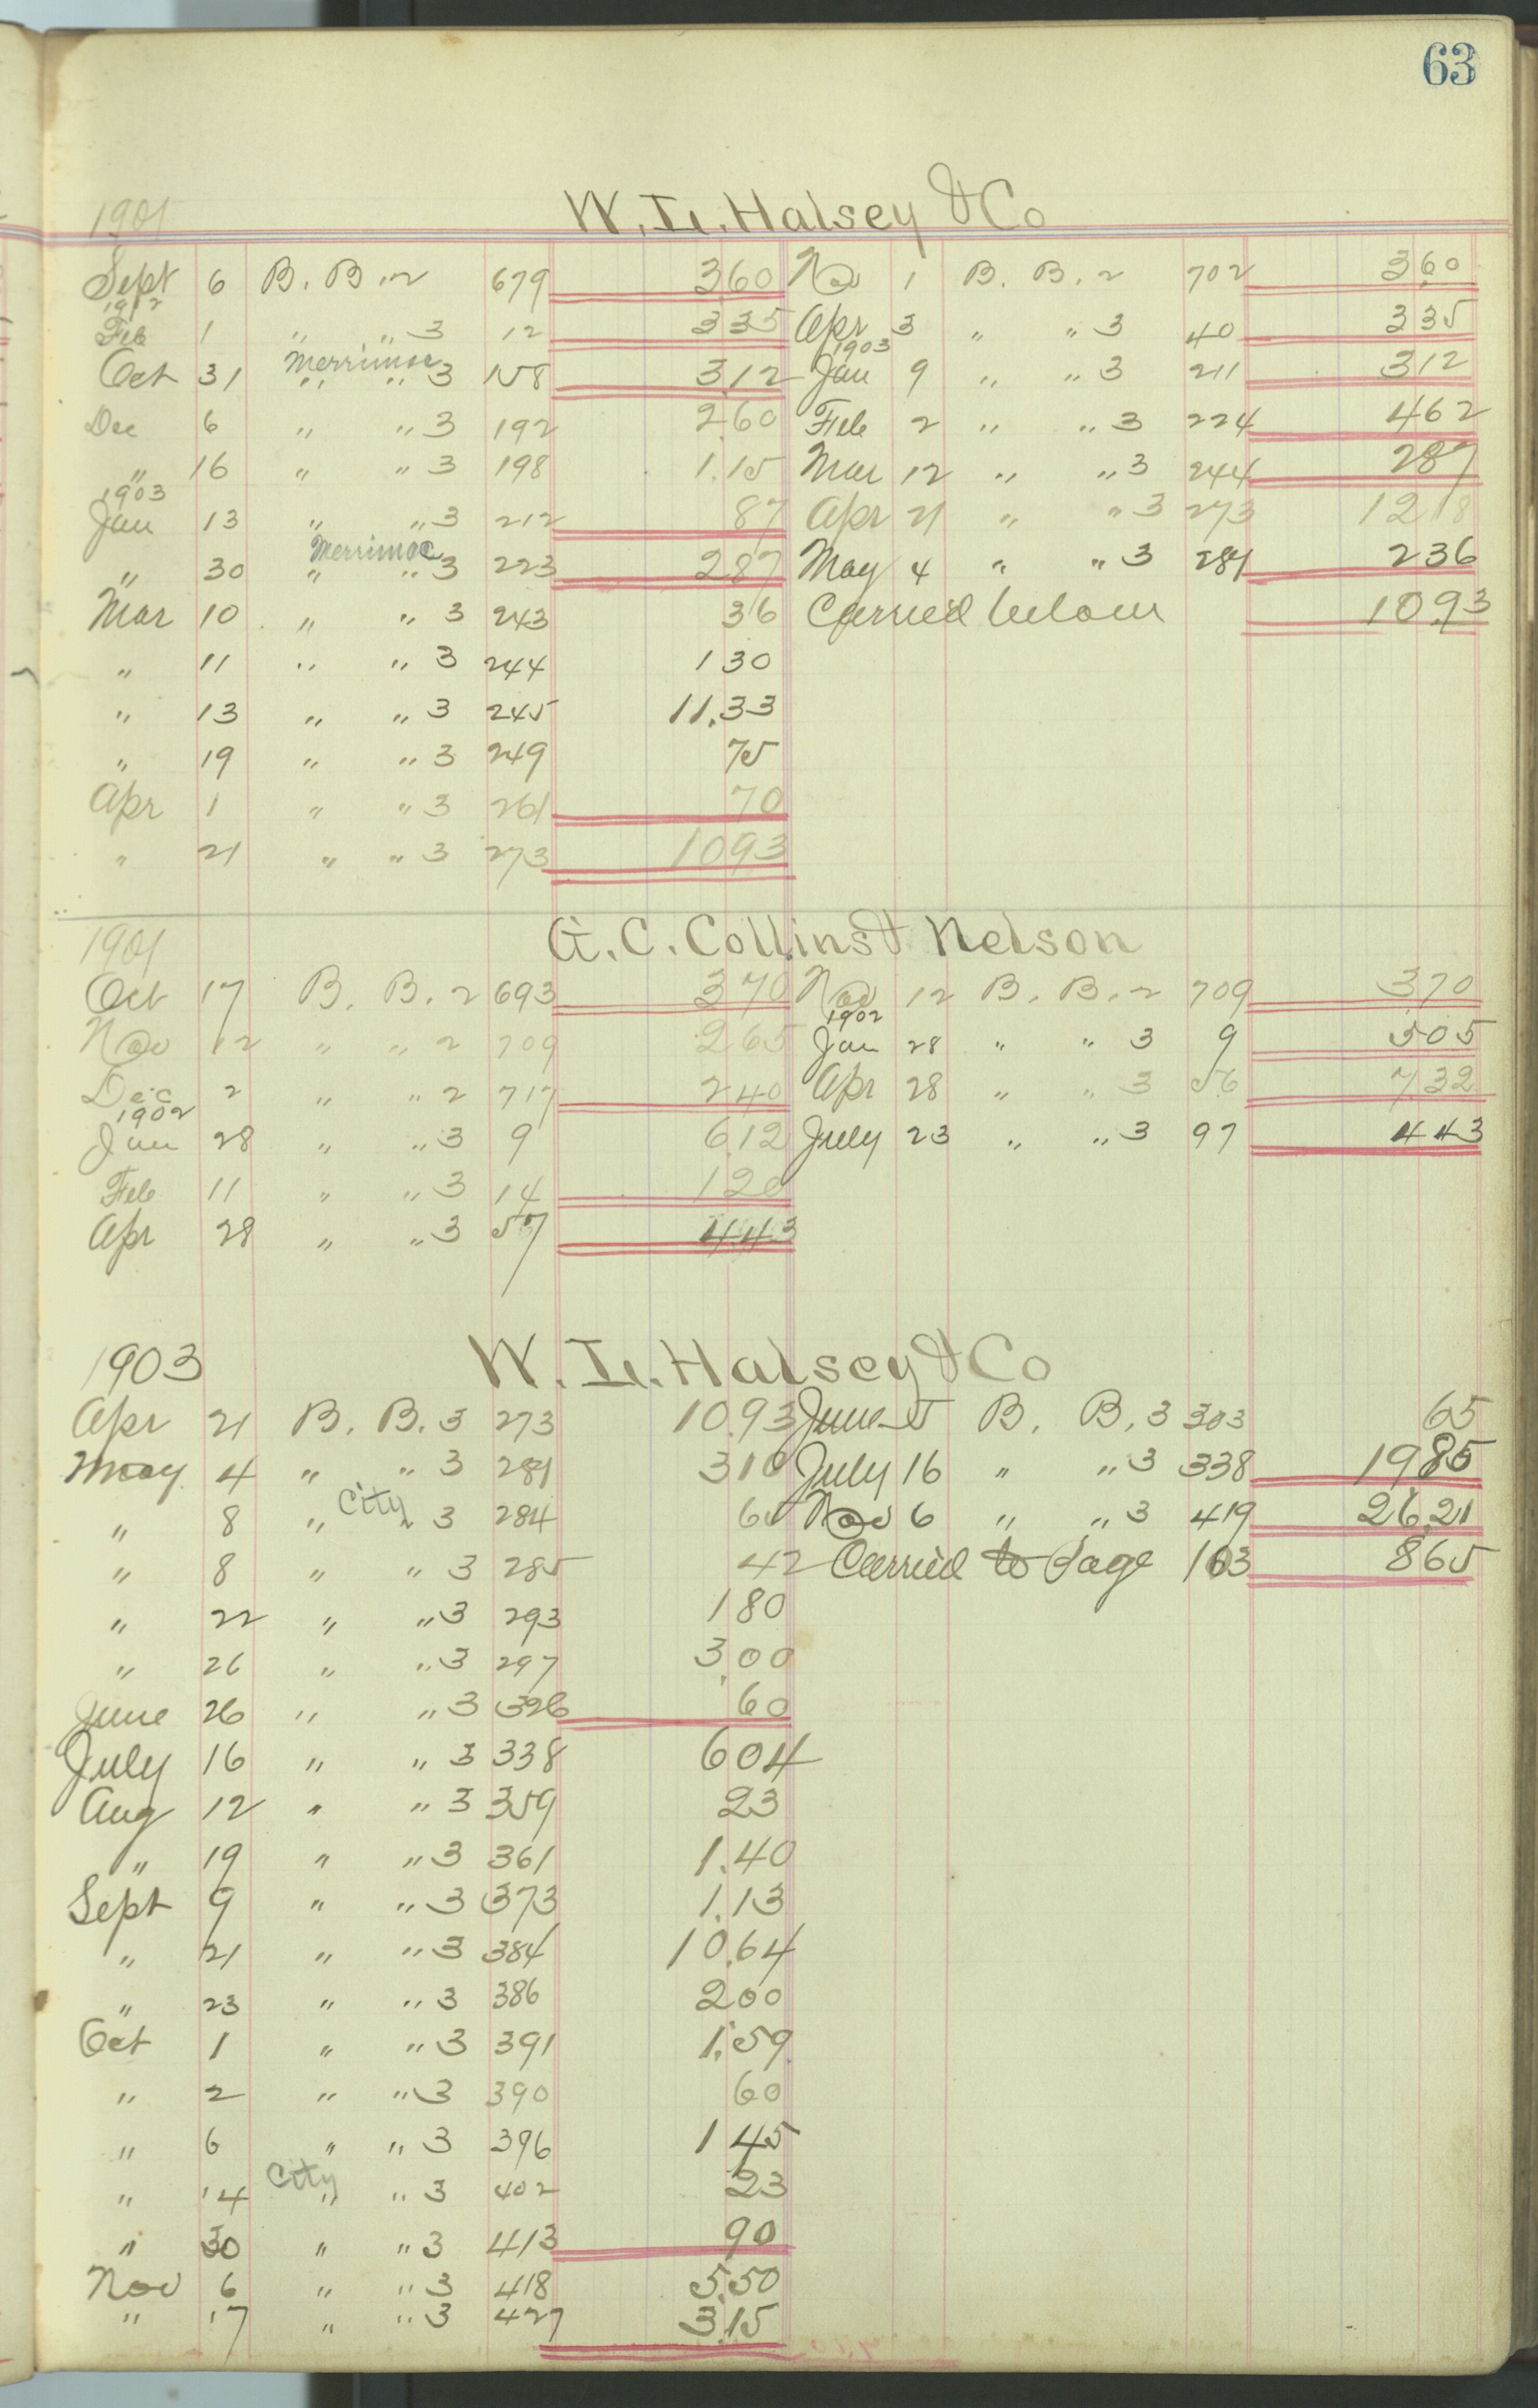 63
1901 W. L. Halsey & Co
Sept 6 B. B. 2 679 3 60 Nov 1 B. B. 2 702 3 60
1902
Feb 1 " " 3 12 3 35 Apr 3 " " 3 40 3 35
Merrimac 1903
Oct 31 " " 3 158 3.12 Jan 9 " " 3 211 3 12
Dec 6 " " 3 192 2 60 Feb 2 " " 3 224 4 62
" 16 " " 3 198 1.15 Mar 12 " " 3 244 2 87
1903
Jan 13 " " 3 212 87 Apr 21 " " 3 273 12 18
Merrimac
" 30 " " 3 223 2 87 May 4 " " 3 281 2 36
Mar 10 " " 3 243 36 Carried below 10.93
" 11 " " 3 244 1 30
" 13 " " 3 245 11.33
" 19 " " 3 249 75
Apr 1 " " 3 261 70
" 21 " " 3 273 10 93
1901 G. C. Collins & Nelson
Oct 17 B. B. 2 693 3 70 Nov 12 B. B. 2 709 3 70
1902
Nov 12 " " 2 709 2 65 Jan 28 " " 3 9 5 05
Dec 2 " " 2 717 2 40 Apr 28 " " 3 56 7 32
1902
Jan 28 " " 3 9 6 12 July 23 " " 3 97 4 43
Feb 11 " " 3 14 1 20
Apr 28 " " 3 57 4.43
1903 W. L. Halsey & Co
Apr 21 B. B. 3 273 10.93 June 5 B. B. 3 303 65
May 4 " " 3 281 3 10 July 16 " " 3 338 19 85
City
" 8 " " 3 284 65 Nov 6 " " 3 419 26.21
" 8 " " 3 285 42 Carried to Page 163 8 65
" 22 " " 3 293 1 80
" 26 " " 3 297 3.00
June 26 " " 3 326 60
July 16 " " 3 338 6 04
Aug 12 " " 3 359 23
" 19 " " 3 361 1.40
Sept 9 " " 3 373 1.13
" 21 " " 3 384 10.64
" 23 " " 3 386 2 00
Oct 1 " " 3 391 1.59
" 2 " " 3 390 60
" 6 " " 3 396 1 45
City
" 14 " " 3 402 23
" 30 " " 3 413 90
Nov 6 " " 3 418 5.50
" 17 " " 3 427 3.15